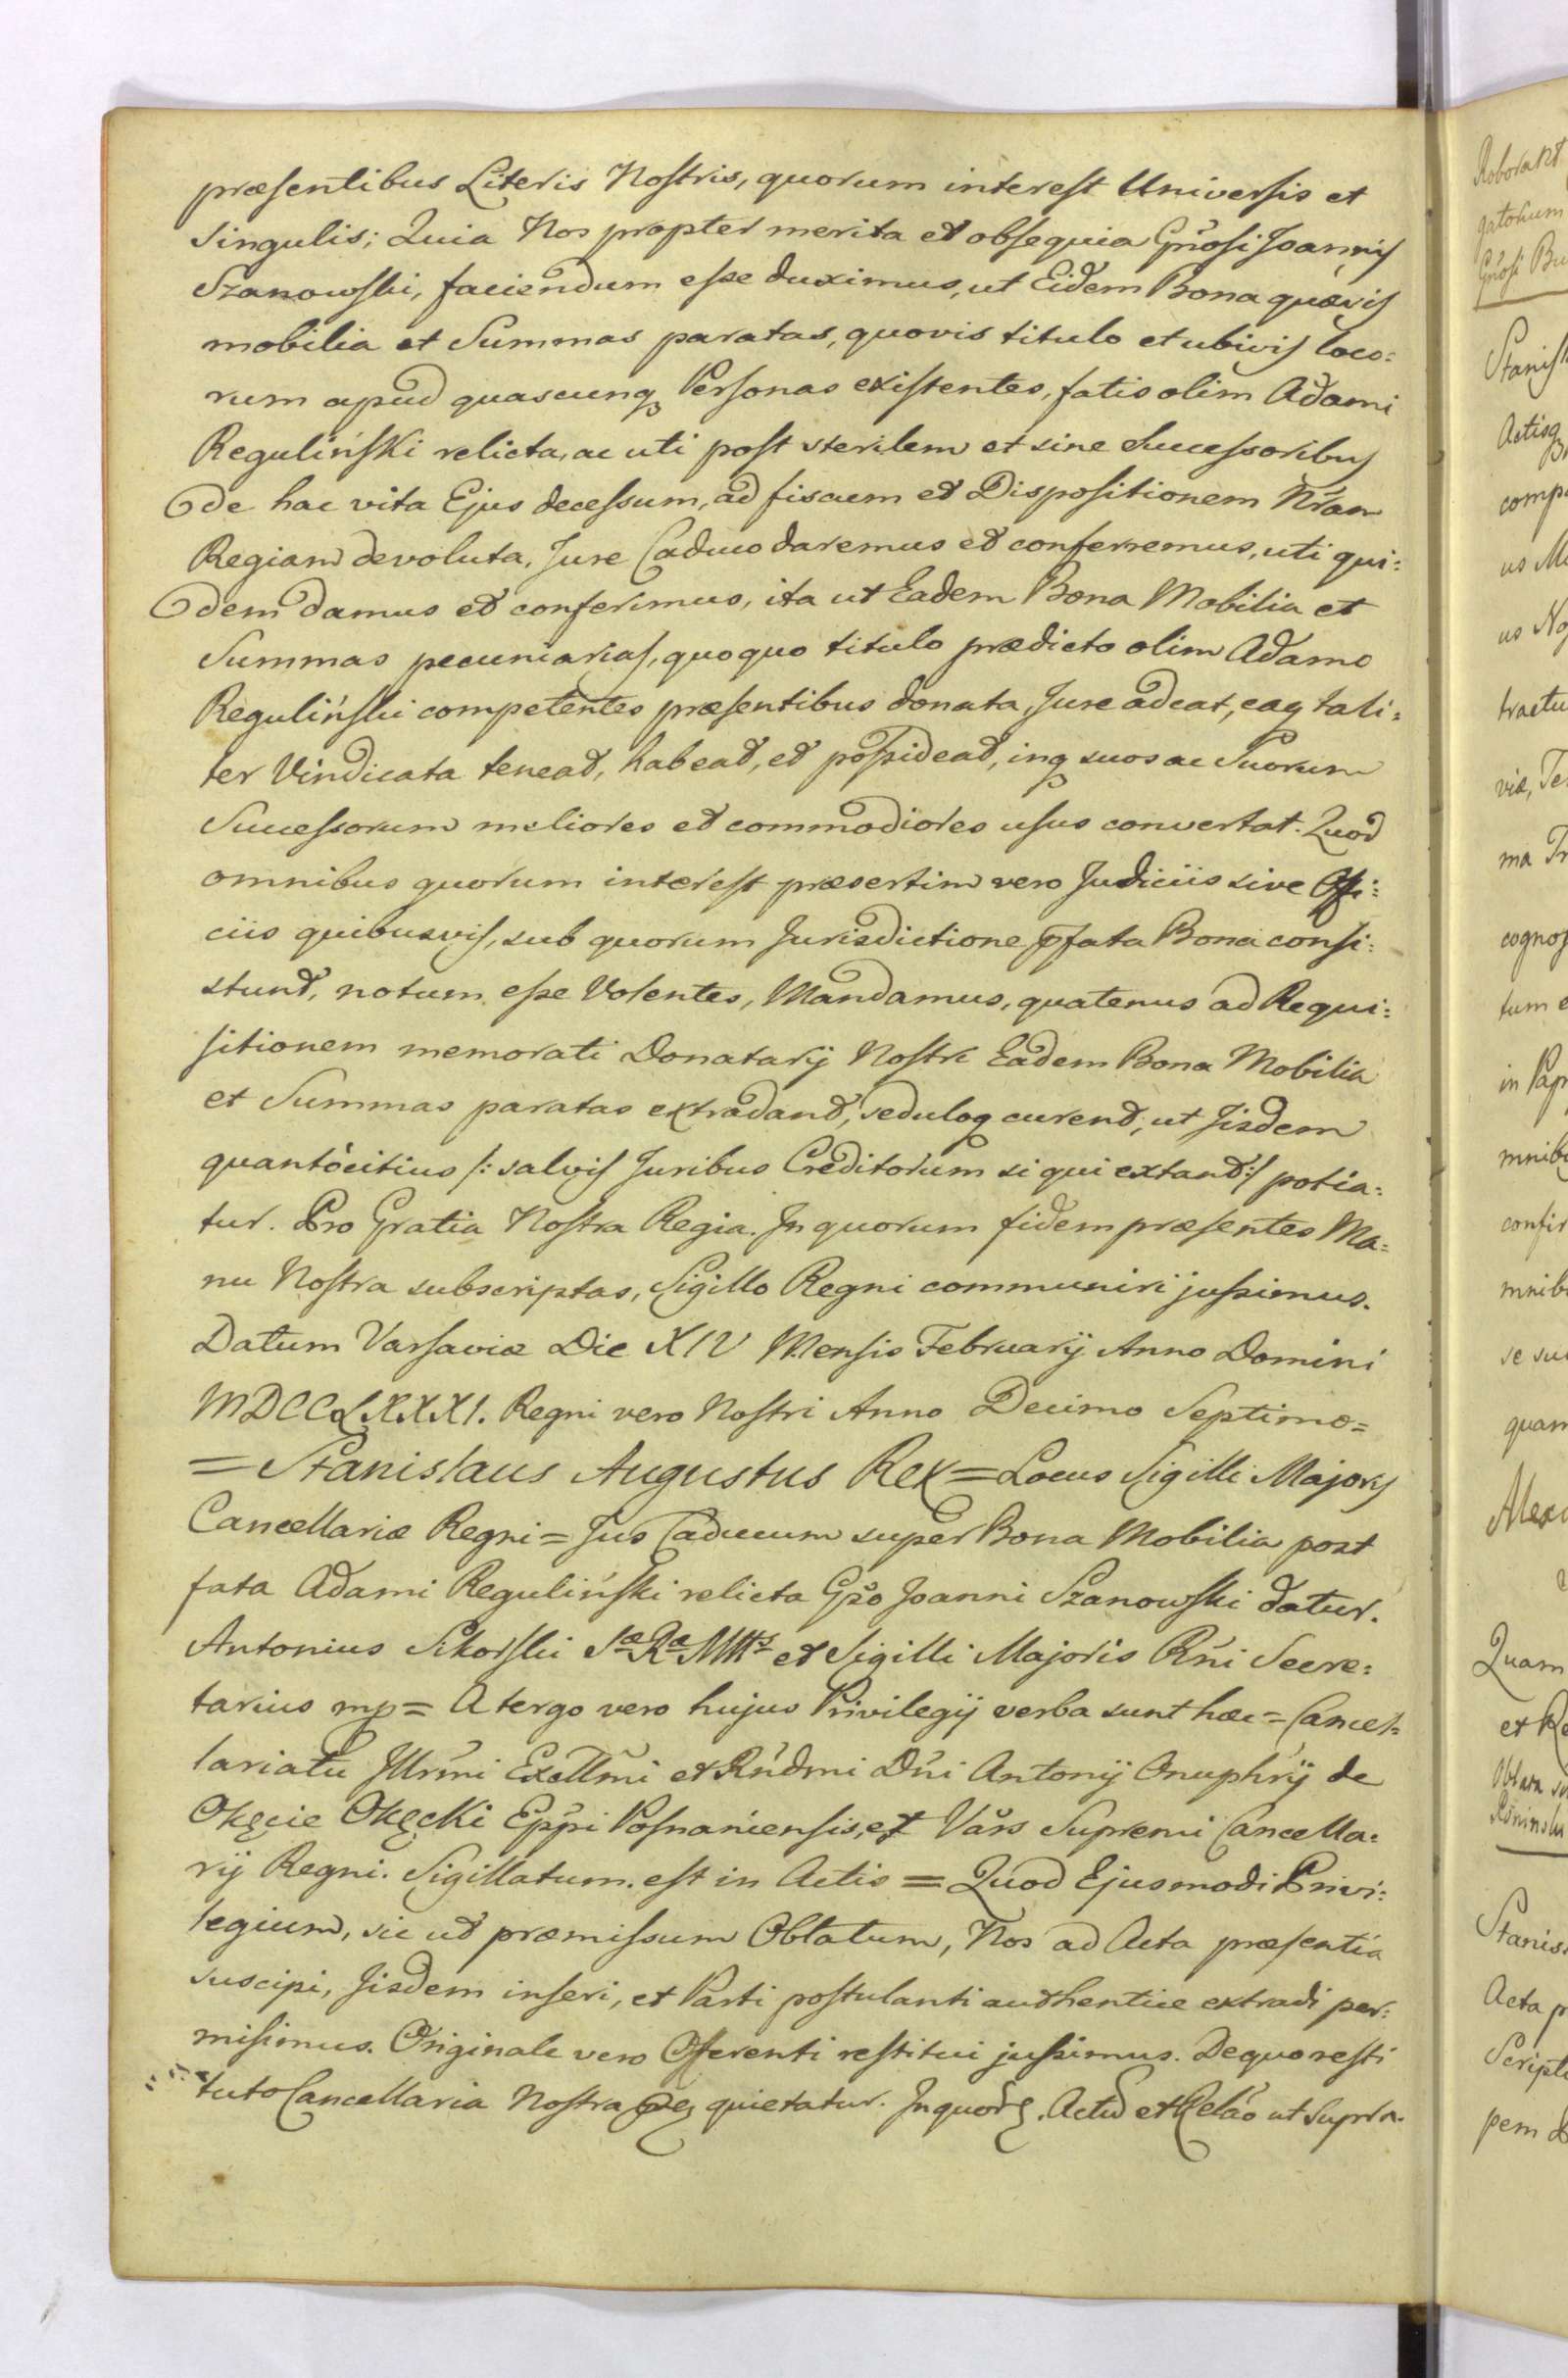 præsentibus Literis Nostris, quorum interest Universis et
singulis; Quia Nos propter merita et obsequia Gñosi Joannis
Szanowski, faciendum esse duximus, ut Eidem Bona quævis
mobilia et Summas paratas, quovis titulo et ubivis loco=
rum apud quascunq Personas existentes, fatis olim Adami
Reguliński relicta, ac uti post sterilem et sine Successoribus
de hac vita Ejus decessum, ad fiscum et Dispositionem Nram
Regiam devoluta, Jure Caduco daremus et conferremus, uti qui=
dem damus et conferimus, ita ut Eadem Bona Mobilia et
Summas pecuniarias, quoquo titulo prædicto olim Adamo
Reguliński competentes præsentibus donata, Jure adeat, eaq tali=
ter Vindicata teneat, habeat, et possideat, inq suos ac Suorum
Successorum meliores et commodiores usus convertat. Quod
omnibus quorum interest præsertim vero Judiciis sive Offi=
ciis quibusvis, sub quorum Jurisdictione pfata Bona consi=
stunt, notum esse Volentes, Mandamus, quatenus ad Requi=
sitionem memorati Donatarij Nostri Eadem Bona Mobilia
et Summas paratas extradant, seduloq curent, ut Iisdem
quantocitius /: salvis Juribus Creditorum si qui extant :/ potia=
tur. Pro Gratia Nostra Regia. In quorum fidem præsentes Ma=
nu Nostra subscriptas, Sigillo Regni communiri jussimus.
Datum Varsaviæ Die XIV Mensis Februarij Anno Domini
MDCCLXXXI. Regni vero Nostri Anno Decimo Septimo=
= Stanislaus Augustus Rex = Locus Sigilli Majoris
Cancellariæ Regni = Jus Caducum super Bona Mobilia post
fata Adami Reguliński relicta Gso Joanni Szanowski datur.
Antonius Sikorski Sæ Ræ Mttis et Sigilli Majoris Rñi Secre=
tarius mp = A tergo vero hujus Privilegij verba sunt hæc = Cancel=
lariatu Illrmi Excllmi et Rndmi Dñi Antonij Onuphrij de
Okęcie Okęcki Eppi Posnaniensis, et Vars Supremi Cancella=
rij Regni. Sigillatum est in Actis = Quod Ejusmodi Privi=
legium, sic ut præmissum Oblatum, Nos ad Acta præsentia
suscipi, Iisdem inseri, et Parti postulanti authentice extradi per=
misimus. Originale vero Offerenti restitui jussimus. De quo resti
tuto Cancellaria Nostra quietatur. In quor. Actu et Relaõ ut Supra.